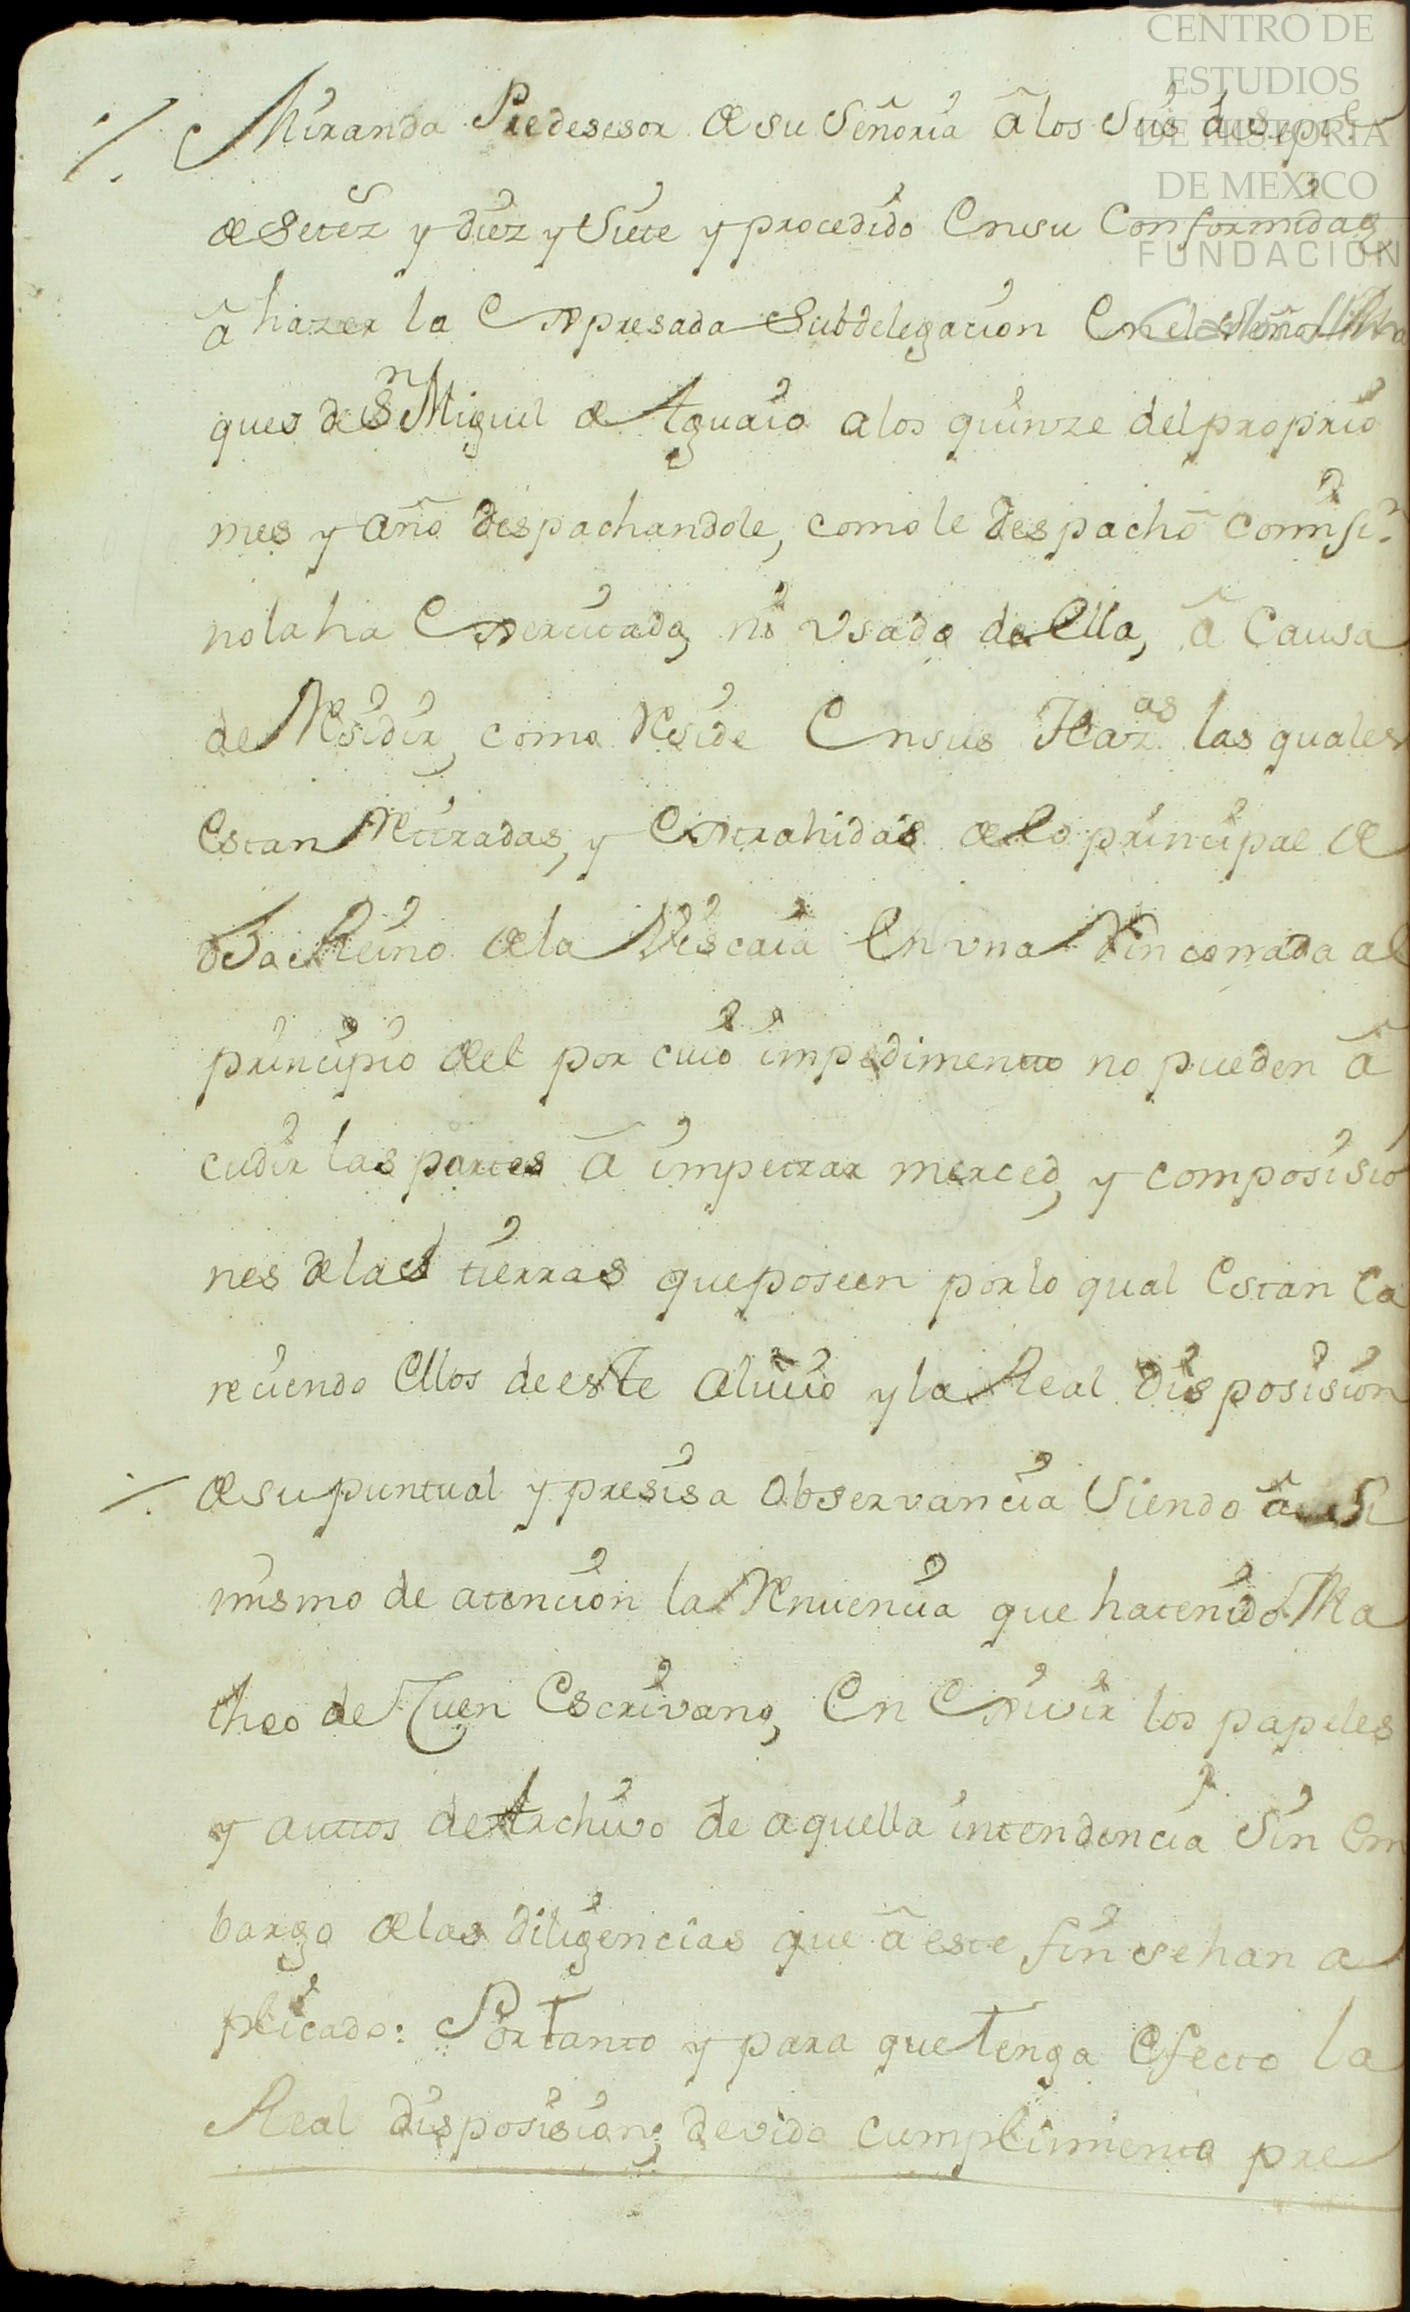 CENTRO DE
ESTUDIOS
DE HISTORIA
DE MEXICO
FUNDACIÓN
Miranda Predesesor de su Señoria â los Sús de Sepe
de Setez y diez y Siete y procedido Ensu Conformidad
â hazer la Expresada Subdelegacion En el Señor Mar
ques de Sn Miguel de Aguaio a los quinze del proprio
mes y año despachandole, como le despachô Comisn
no la ha Exercitado, ni vsado de Ella, â Causa
de Residir, como Reside Ensus Hazas las quales
Estan Retiradas, y Extrahidas de lo principal de
Reino de la Viscaia En vna Rinconada al
principio del por cuio impedimento no pueden â
cudir las partes â impetrar merced, y composisio
nes de las tierras que poseen por lo qual Estan Ca
reciendo Ellos de este alivio y la Real disposision
de su puntual y presisa observancia Siendo â Si
mismo de atencion la Renuencia que ha tenido Ma
theo de Escrivano, En Exivir los papeles
y auttos de Archivo de aquella intendencia Sin Em
bargo de las diligencias que â este fin se han a
plicado: Por tanto y para que tenga Efecto la
Real disposision, devido cumplimiento pre